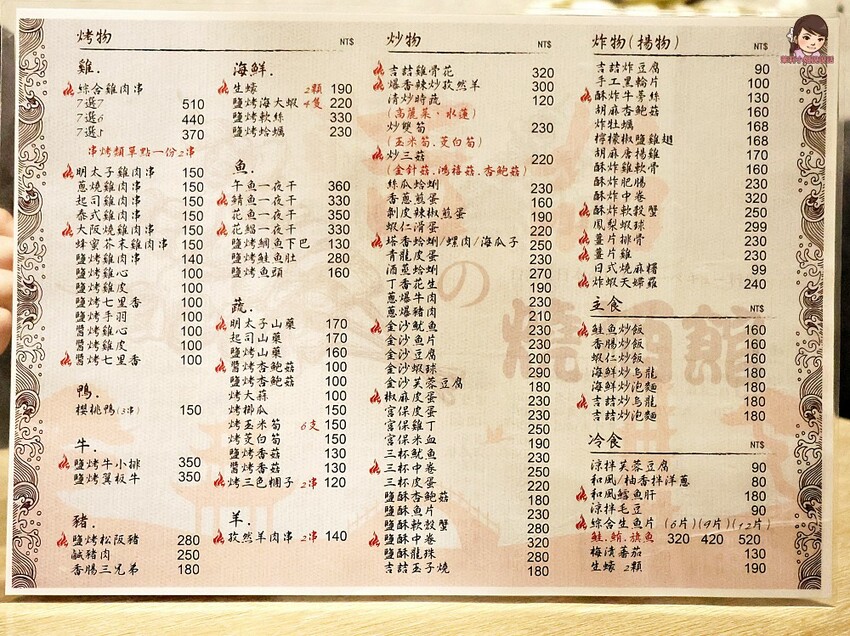 烤物
NT$
雞.
綜合雞肉串
7選7 510
7選6 440
7選5 370
串烤類單點一份2串
明太子雞肉串 150
蔥燒雞肉串 150
起司雞肉串 150
泰式雞肉串 150
大阪燒雞肉串 150
蜂蜜芥末雞肉串 150
鹽烤雞肉串 140
鹽烤雞心 100
鹽烤雞皮 100
鹽烤七里香 100
鹽烤手羽 100
醬烤雞心 100
醬烤雞皮 100
醬烤七里香 100
鴨.
櫻桃鴨(3串) 150
牛.
鹽烤牛小排 350
鹽烤翼板牛 350
豬.
鹽烤松阪豬 280
鹹豬肉 250
香腸三兄弟 180
海鮮. NT$
生蠔 2顆 190
鹽烤海大蝦 4隻 220
鹽烤軟絲 330
鹽烤蛤蠣 230
魚.
午魚一夜干 360
鯖魚一夜干 330
花魚一夜干 350
花鯽一夜干 330
鹽烤鯛魚下巴 130
鹽烤鮭魚肚 280
鹽烤魚頭 160
蔬.
明太子山藥 170
起司山藥 170
鹽烤山藥 160
醬烤杏鮑菇 100
鹽烤杏鮑菇 100
烤大蒜 100
烤櫛瓜 150
烤玉米筍 6支 150
烤茭白筍 150
鹽烤香菇 130
醬烤香菇 130
烤三色糰子 2串 120
羊.
孜然羊肉串 2串 140
炒物
NT$
吉喆雞骨花 320
爆香辣炒孜然羊 300
清炒時蔬 120
(高麗菜、水蓮)
炒雙筍 230
(玉米筍.茭白筍)
炒三菇 220
(金針菇.鴻禧菇.杏鮑菇)
絲瓜蛤蜊 230
香蔥煎蛋 160
剝皮辣椒煎蛋 190
蝦仁滑蛋 220
塔香蛤蜊/螺肉/海瓜子 250
青龍皮蛋 230
酒蒸蛤蜊 270
丁香花生 190
蔥爆牛肉 230
蔥爆豬肉 210
金沙魷魚 230
金沙魚片 230
金沙豆腐 200
金沙蝦球 290
金沙芙蓉豆腐 180
椒麻皮蛋 230
宮保皮蛋 230
宮保雞丁 250
宮保米血 190
三杯魷魚 230
三杯中卷 250
三杯皮蛋 220
鹽酥杏鮑菇 180
鹽酥魚片 230
鹽酥軟殼蟹 280
鹽酥中卷 320
鹽酥龍珠 280
吉喆玉子燒 180
炸物(揚物)
NT$
吉喆炸豆腐 90
手工黑輪片 100
酥炸牛蒡絲 130
胡麻杏鮑菇 160
炸牡蠣 168
檸檬椒鹽雞翅 168
胡麻唐揚雞 170
酥炸雞軟骨 160
酥炸肥腸 230
酥炸中卷 320
酥炸軟殼蟹 250
鳳梨蝦球 299
薑片排骨 230
薑片雞 230
日式燒麻糬 99
炸蝦天婦羅 240
主食
NT$
鮭魚炒飯 160
香腸炒飯 160
蝦仁炒飯 160
海鮮炒烏龍 180
海鮮炒泡麵 180
吉喆炒烏龍 180
吉喆炒泡麵 180
冷食
NT$
涼拌芙蓉豆腐 90
和風/柚香拌洋蔥 80
和風鱈魚肝 180
涼拌毛豆 90
綜合生魚片 (6片)(9片)(12片)
鮭.鮪.旗魚 320 420 520
梅漬蕃茄 130
生蠔 2顆 190